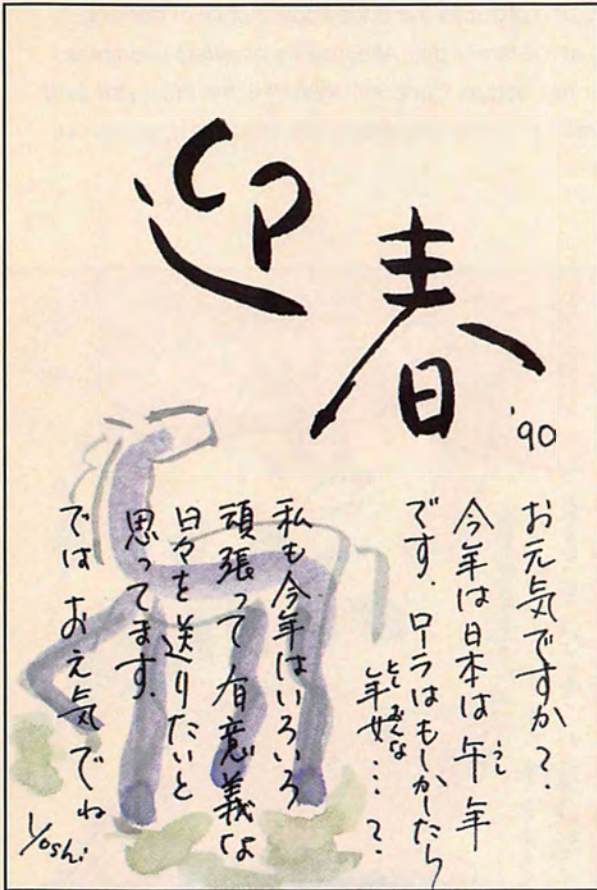 迎春
'90
お元気ですか?
今年は日本は午年
うし
です。ローラはもしかしたら
年女…?
としおんな
私も今年はいろいろ
頑張って有意義な
日々を送りたいと
思ってます。
では お元気でね
Yoshi